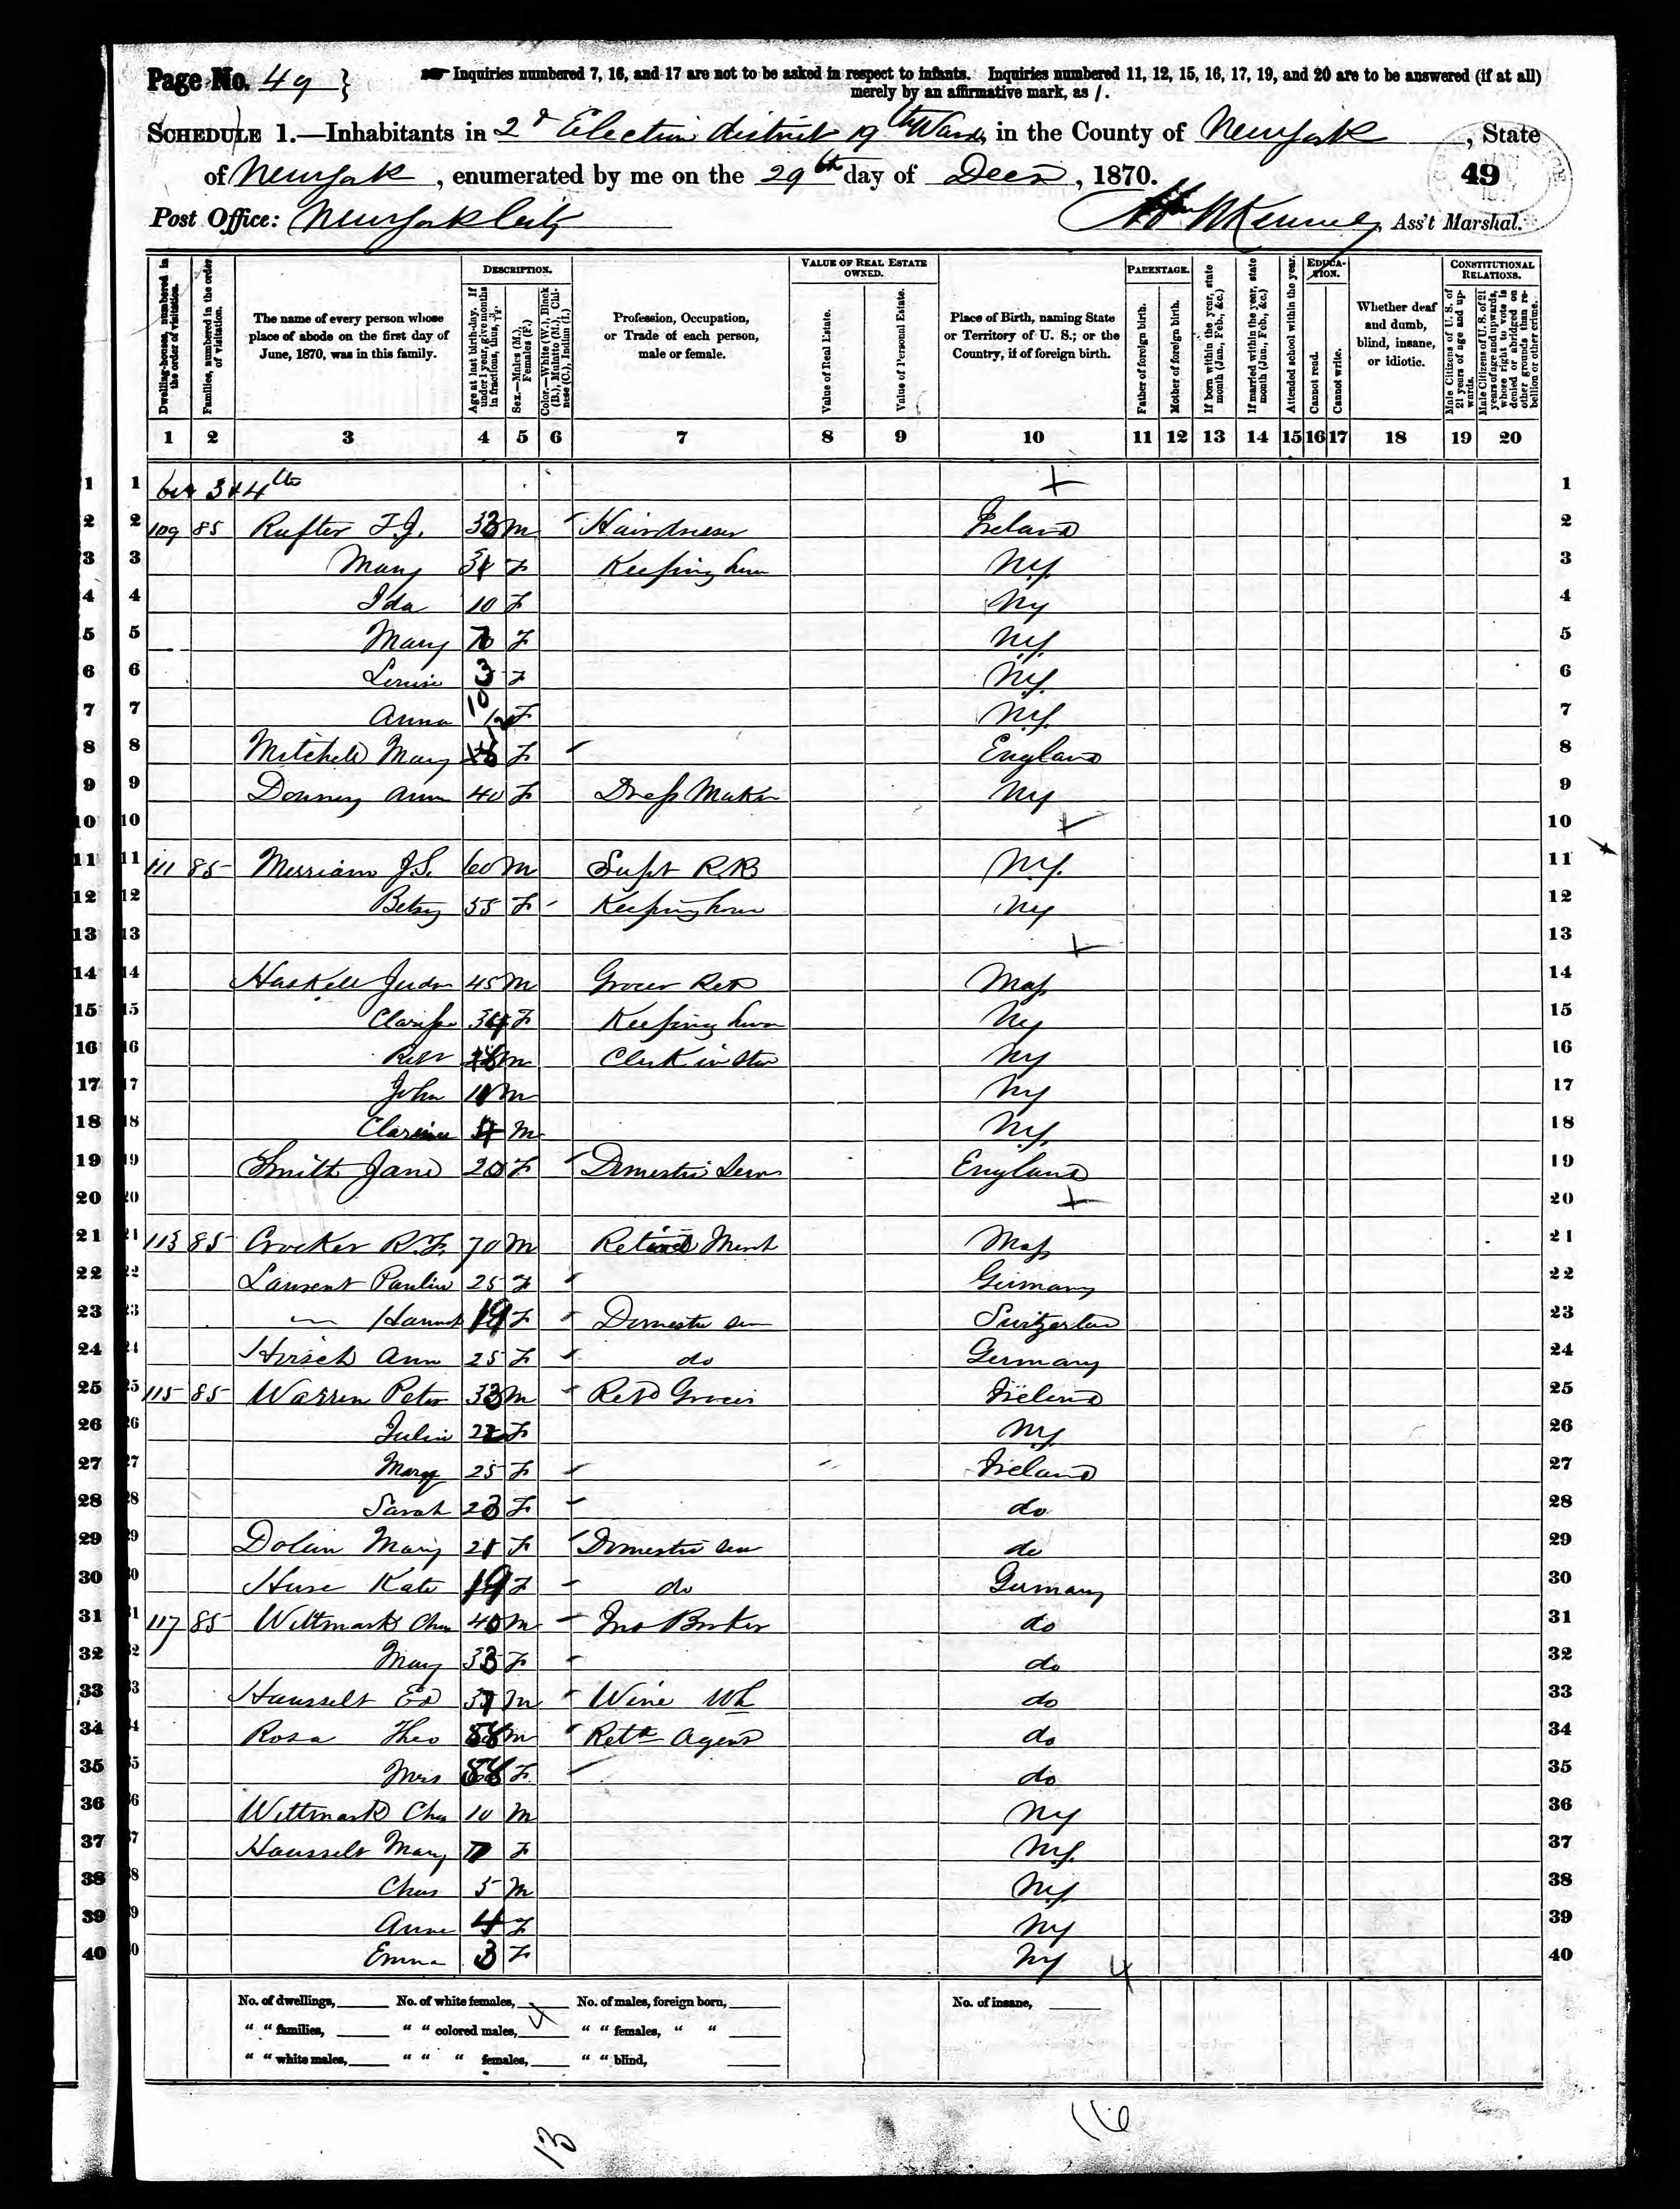 Page No. 49 }
Inquiries numbered 7, 16, and 17 are not to be asked in respect to infants. Inquiries numbered 11, 12, 15, 16, 17, 19, and 20 are to be answered (if at all)
merely by an affirmative mark, as /.
SCHEDULE 1.—Inhabitants in 2d Election district 19th Ward, in the County of New York, State
of New York, enumerated by me on the 29th day of Decr, 1870.
49
Post Office: New York City
Ass't Marshal.
Dwelling-houses, numbered in the order of visitation.
Families, numbered in the order of visitation.
The name of every person whose place of abode on the first day of June, 1870, was in this family.
DESCRIPTION.
Age at last birth-day. If under 1 year, give months in fractions, thus, 3/12.
Sex.—Males (M.), Females (F.)
Color.—White (W.), Black (B.), Mulatto (M.), Chinese (C.), Indian (I.)
Profession, Occupation, or Trade of each person, male or female.
VALUE OF REAL ESTATE OWNED.
Value of Real Estate.
Value of Personal Estate.
Place of Birth, naming State or Territory of U. S.; or the Country, if of foreign birth.
PARENTAGE.
Father of foreign birth.
Mother of foreign birth.
If born within the year, state month (Jan., Feb., &c.)
If married within the year, state month (Jan., Feb., &c.)
Attended school within the year.
EDUCATION.
Cannot read.
Cannot write.
Whether deaf and dumb, blind, insane, or idiotic.
CONSTITUTIONAL RELATIONS.
Male Citizens of U. S. of 21 years of age and upwards.
Male Citizens of U. S. of 21 years of age and upwards, whose right to vote is denied or abridged on other grounds than rebellion or other crime.
1 2 3 4 5 6 7 8 9 10 11 12 13 14 15 16 17 18 19 20
1 bet 3 & 4th 1
2 109 85 Rufter T.J. 33 M Hairdresser Ireland 2
3 Mary 31 F Keeping house N.Y. 3
4 Ida 10 F NY 4
5 Mary 7 F N.Y. 5
6 Louise 3 F N.Y. 6
7 Anna 10/12 F N.Y. 7
8 Mitchell Mary F England 8
9 Downey Ann 40 F Dress Maker NY 9
10 10
11 111 85 Merriam J.S. 60 M Supt R.R N.Y. 11
12 Betsy 55 F Keeping house NY 12
13 13
14 Haskell 45 M Grocer Ret Mass 14
15 Clarissa 34 F Keeping house NY 15
16 Robt 18 M Clerk in Store NY 16
17 John 11 M NY 17
18 Clarence M N.Y. 18
19 Smith Jane 20 F Domestic Serv England 19
20 20
21 113 85 Crocker R.F. 70 M Retired Merch Mass 21
22 Laurent Pauline 25 F Germany 22
23 Hannah 19 F Domestic Serv Switzerland 23
24 Hirsch Ann 25 F do Germany 24
25 115 85 Warren Peter 33 M Retd Grocer Ireland 25
26 Julia 22 F N.Y. 26
27 Mary 25 F Ireland 27
28 Sarah 23 F do 28
29 Dolan Mary 21 F Domestic Serv do 29
30 Huse Kate 19 F do Germany 30
31 117 85 Wittmark Chas 40 M Ins Broker do 31
32 May 33 F do 32
33 Hausselt Ed 37 M Wine Wh do 33
34 Rosa Theo M Retd Agent do 34
35 Mrs F do 35
36 Wittmark Chas 10 M NY 36
37 Hausselt Mary 7 F N.Y. 37
38 Chas 5 M N.Y. 38
39 Anna 4 F NY 39
40 Emma 3 F NY 40
4
No. of dwellings, No. of white females, No. of males, foreign born, No. of insane,
" " families, " " colored males, 4 " " females, " "
" " white males, " " " females, " " blind,
13
16